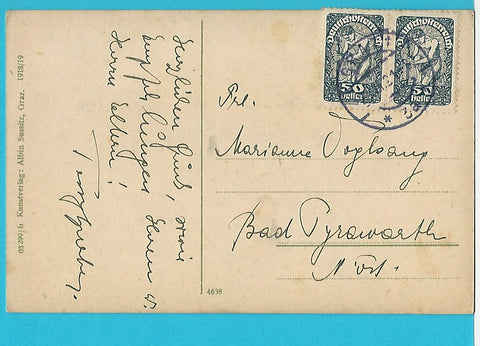 Herzlichen Gruß, sowie
Empfehlungen Ihren w.
Herrn Eltern!
Frl.
Marianne Voglsang
Bad Pyrawarth
N. Öst.
Deutschösterreich
50
heller
Deutschösterreich
50
heller
4638
03299/b Kunstverlag: Albin Sussitz, Graz. 1918/19